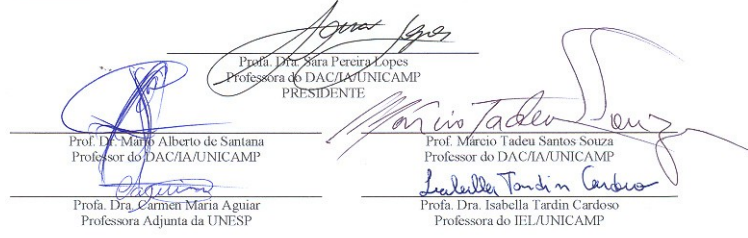 Profa. Dra. Sara Pereira Lopes
Professora do DAC/IA/UNICAMP
PRESIDENTE
Márcio Tadeu Souza
Prof. Dr. Mario Alberto de Santana
Professor do DAC/IA/UNICAMP
Prof. Marcio Tadeu Santos Souza
Professor do DAC/IA/UNICAMP
Isabella Tardin Cardoso
Profa. Dra. Carmen Maria Aguiar
Professora Adjunta da UNESP
Profa. Dra. Isabella Tardin Cardoso
Professora do IEL/UNICAMP